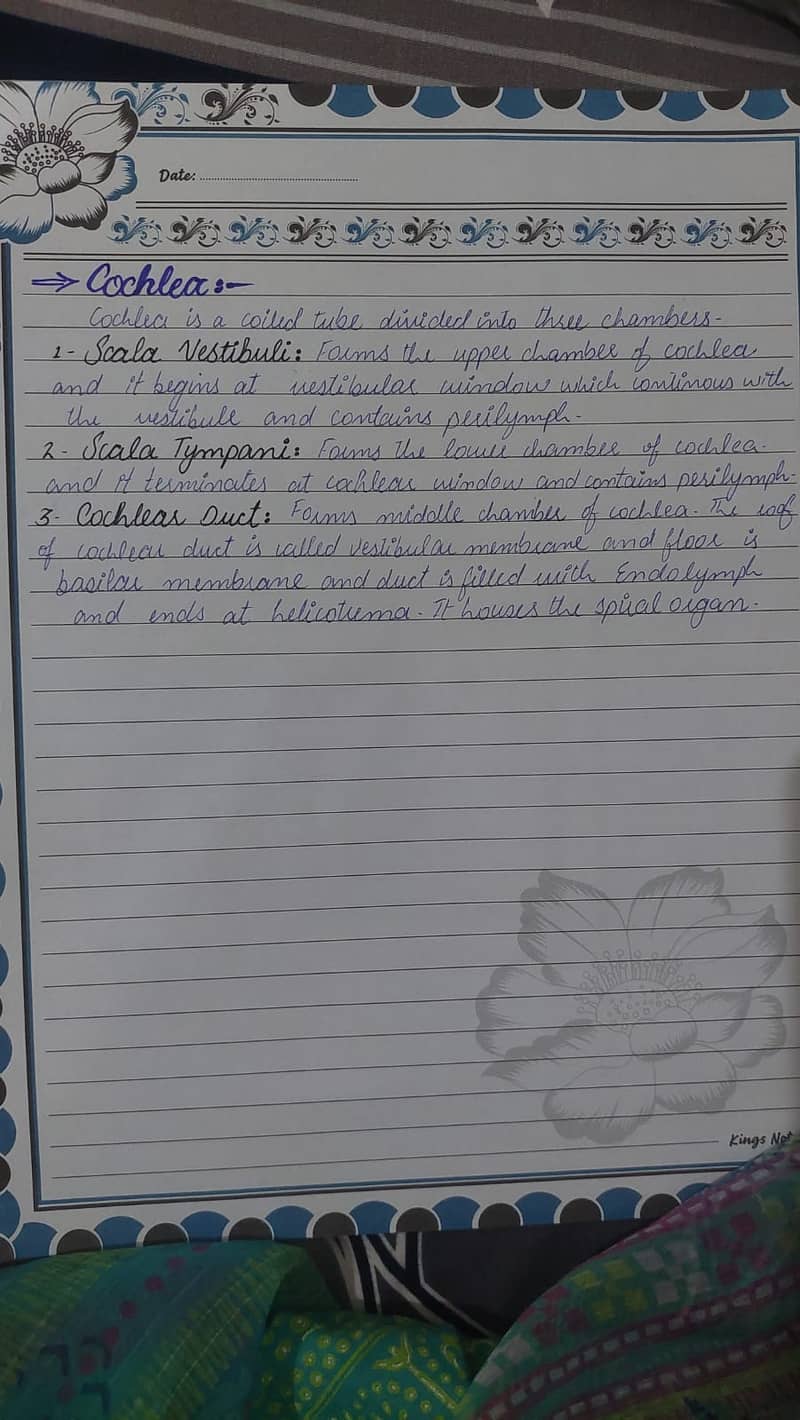 Date:
⇒ Cochlea:-
Cochlea is a coiled tube divided into three chambers-
1- Scala Vestibuli: Forms the upper chamber of cochlea
and it begins at vestibular window which continous with
the vestibule and contains perilymph-
2- Scala Tympani: Forms the lower chamber of cochlea-
and it terminates at cochlear window and contains perilymph-
3- Cochlear Duct: Forms middle chamber of cochlea. The roof
of cochlear duct is called vestibular membrane and floor is
basilar membrane and duct is filled with Endolymph
and ends at helicotrema. It houses the spiral organ.
Kings